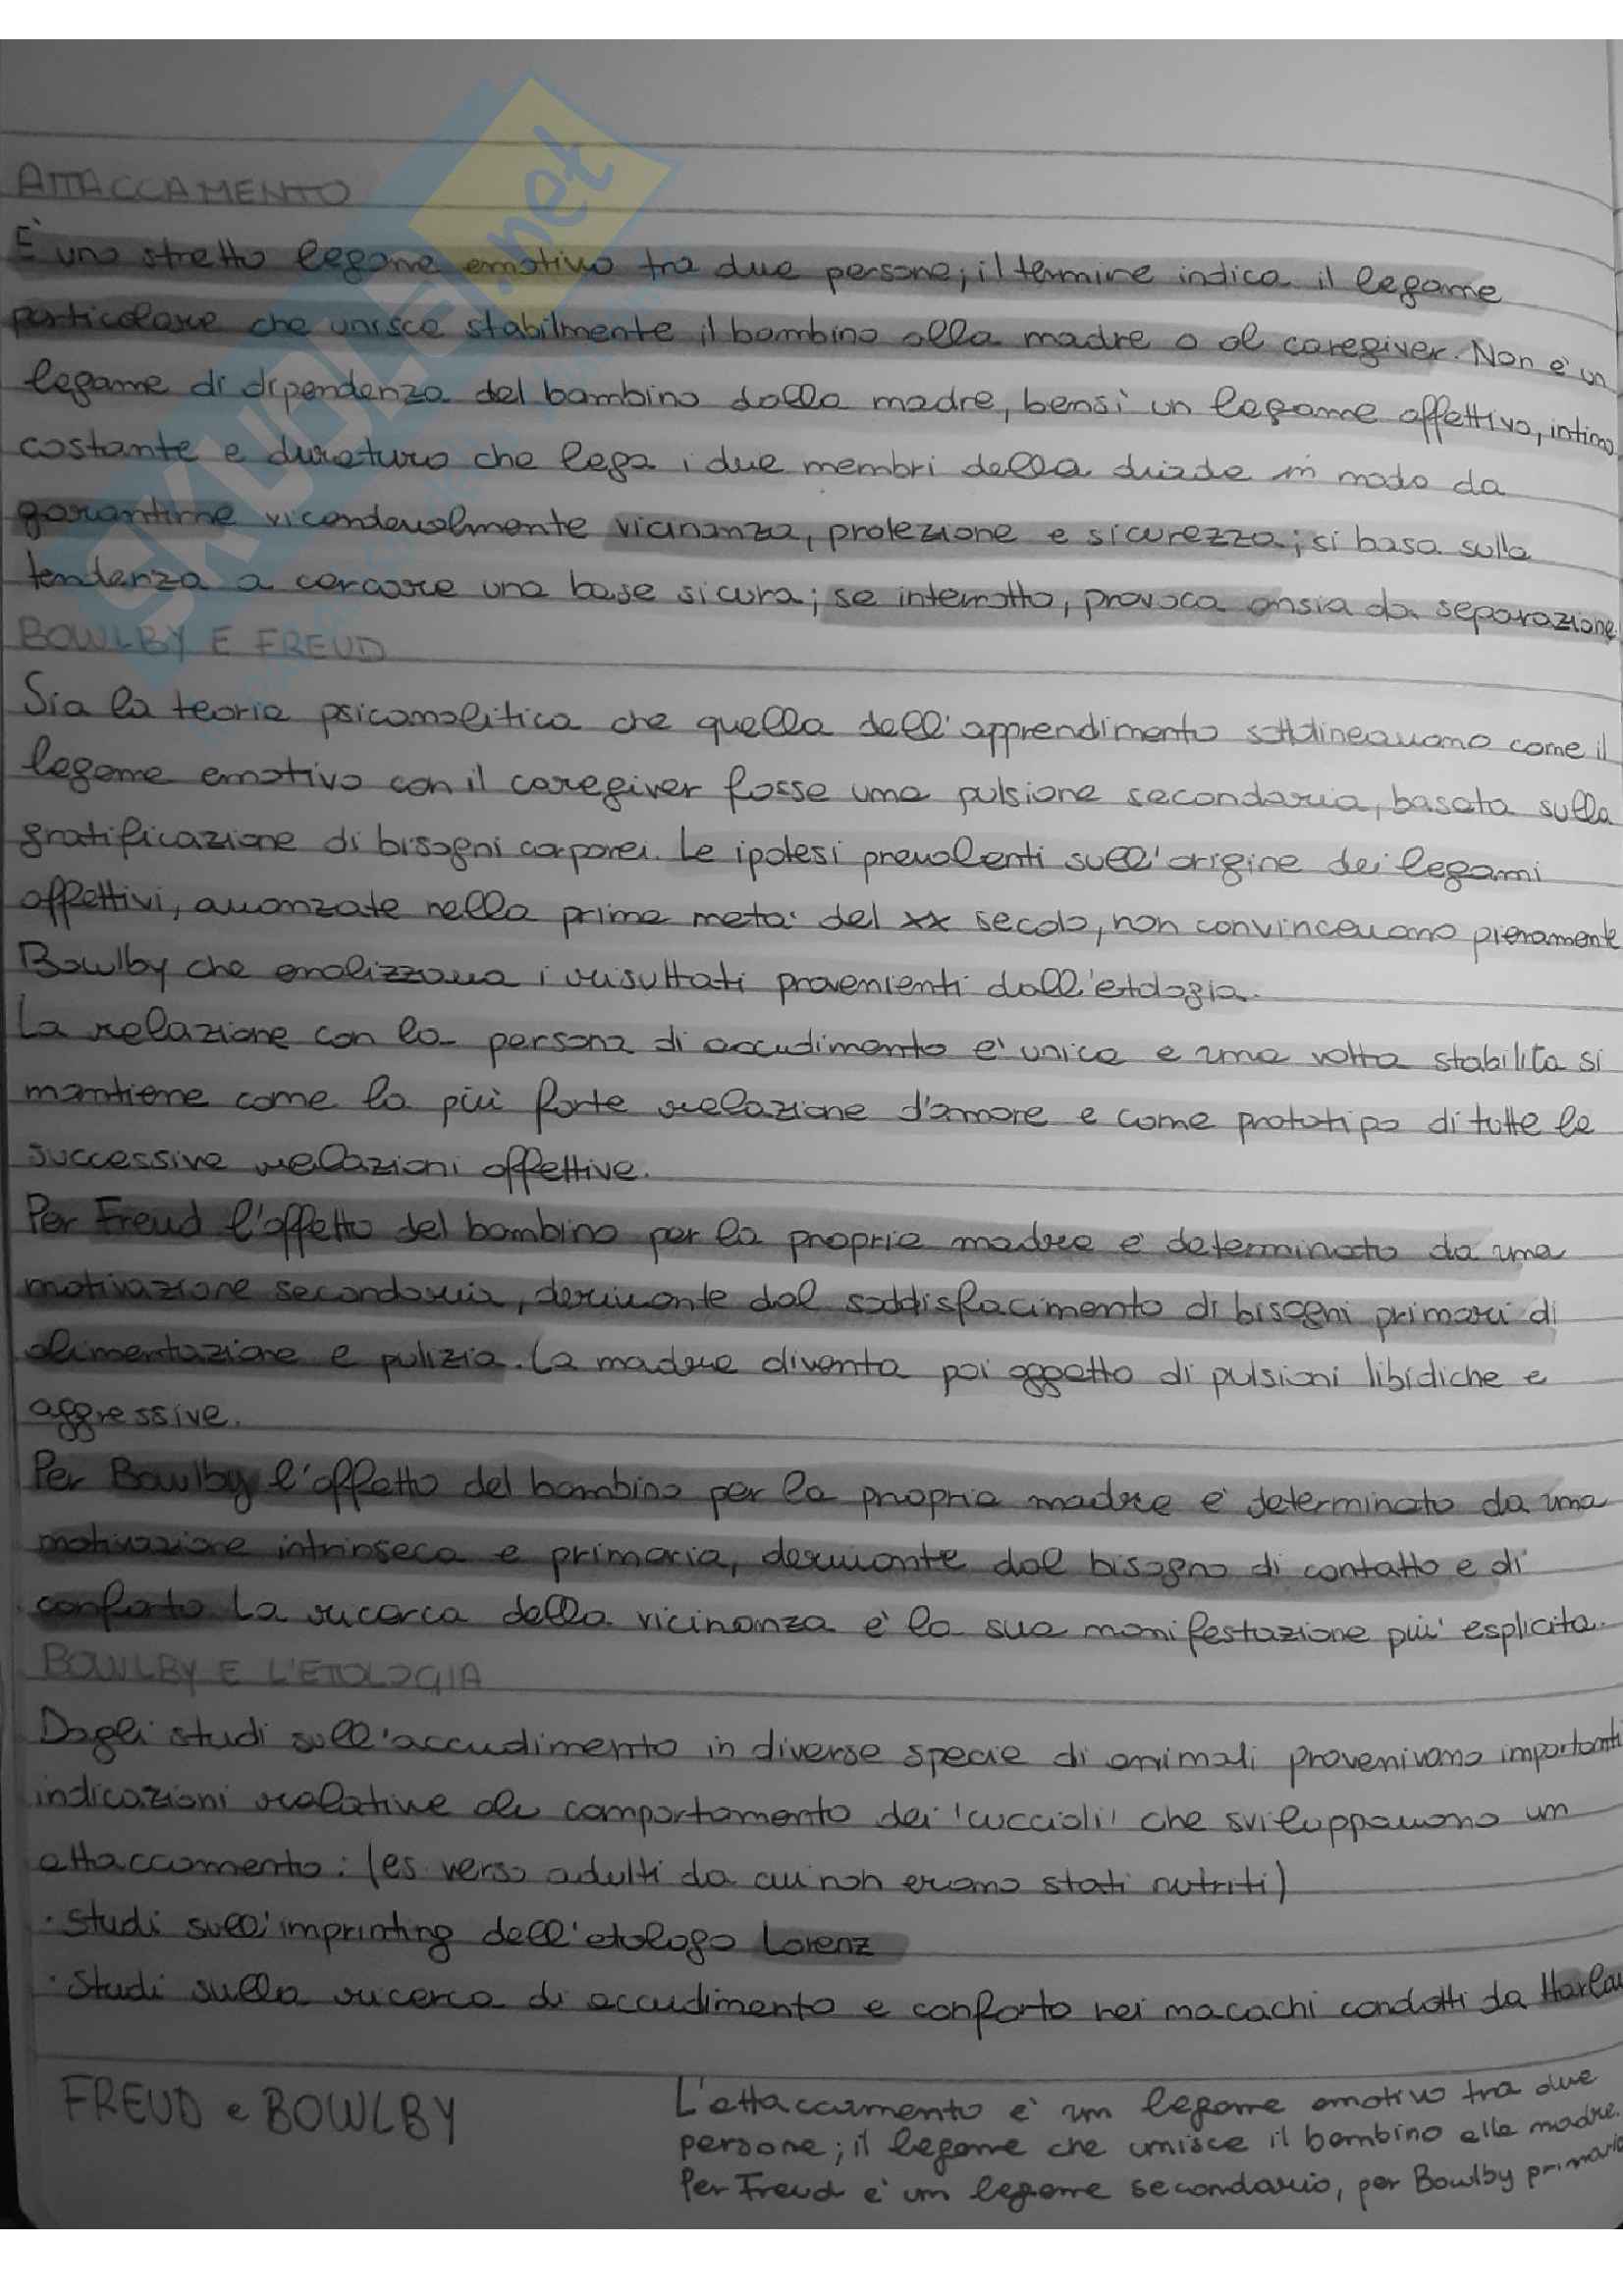 ATTACCAMENTO
E' uno stretto legame emotivo tra due persone; il termine indica il legame
particolare che unisce stabilmente il bambino alla madre o al caregiver. Non è un
legame di dipendenza del bambino dalla madre, bensì un legame affettivo, intimo,
costante e duraturo che lega i due membri della diade in modo da
garantirne vicendevolmente vicinanza, protezione e sicurezza; si basa sulla
tendenza a cercare una base sicura; se interrotto, provoca ansia da separazione.
BOWLBY E FREUD
Sia la teoria psicanalitica che quella dell'apprendimento sottolineavano come il
legame emotivo con il caregiver fosse una pulsione secondaria, basata sulla
gratificazione di bisogni corporei. Le ipotesi prevalenti sull'origine dei legami
affettivi, avanzate nella prima metà del XX secolo, non convincevano pienamente
Bowlby che analizzava i risultati provenienti dall'etologia.
La relazione con la persona di accudimento è unica e una volta stabilita si
mantiene come la più forte relazione d'amore e come prototipo di tutte le
successive relazioni affettive.
Per Freud l'affetto del bambino per la propria madre è determinato da una
motivazione secondaria, derivante dal soddisfacimento di bisogni primari di
alimentazione e pulizia. La madre diventa poi oggetto di pulsioni libidiche e
aggressive.
Per Bowlby l'affetto del bambino per la propria madre è determinato da una
motivazione intrinseca e primaria, derivante dal bisogno di contatto e di
conforto. La ricerca della vicinanza è la sua manifestazione più esplicita.
BOWLBY E L'ETOLOGIA
Dagli studi sull'accudimento in diverse specie di animali provenivano importanti
indicazioni relative al comportamento dei 'cuccioli' che sviluppavano un
attaccamento: (es. verso adulti da cui non erano stati nutriti)
· Studi sull'imprinting dell'etologo Lorenz
· Studi sulla ricerca di accudimento e conforto nei macachi condotti da Harlow
FREUD e BOWLBY
L'attaccamento è un legame emotivo tra due
persone; il legame che unisce il bambino alla madre.
Per Freud è un legame secondario, per Bowlby primario
SKUOLA.net